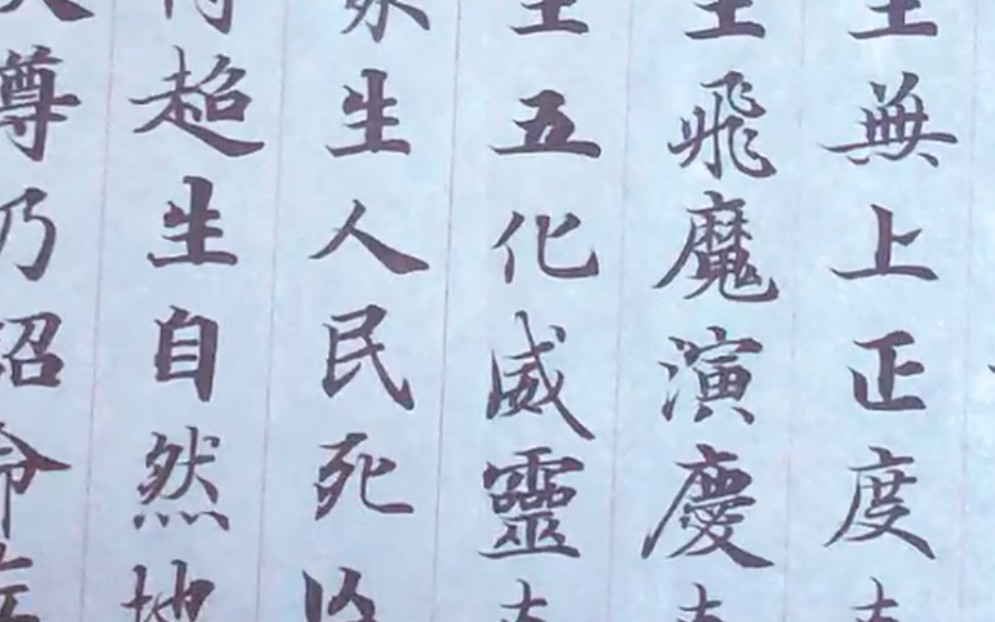 無上正度
飛魔演慶
五化威靈
生人民死
超生自然地
尊乃詔命